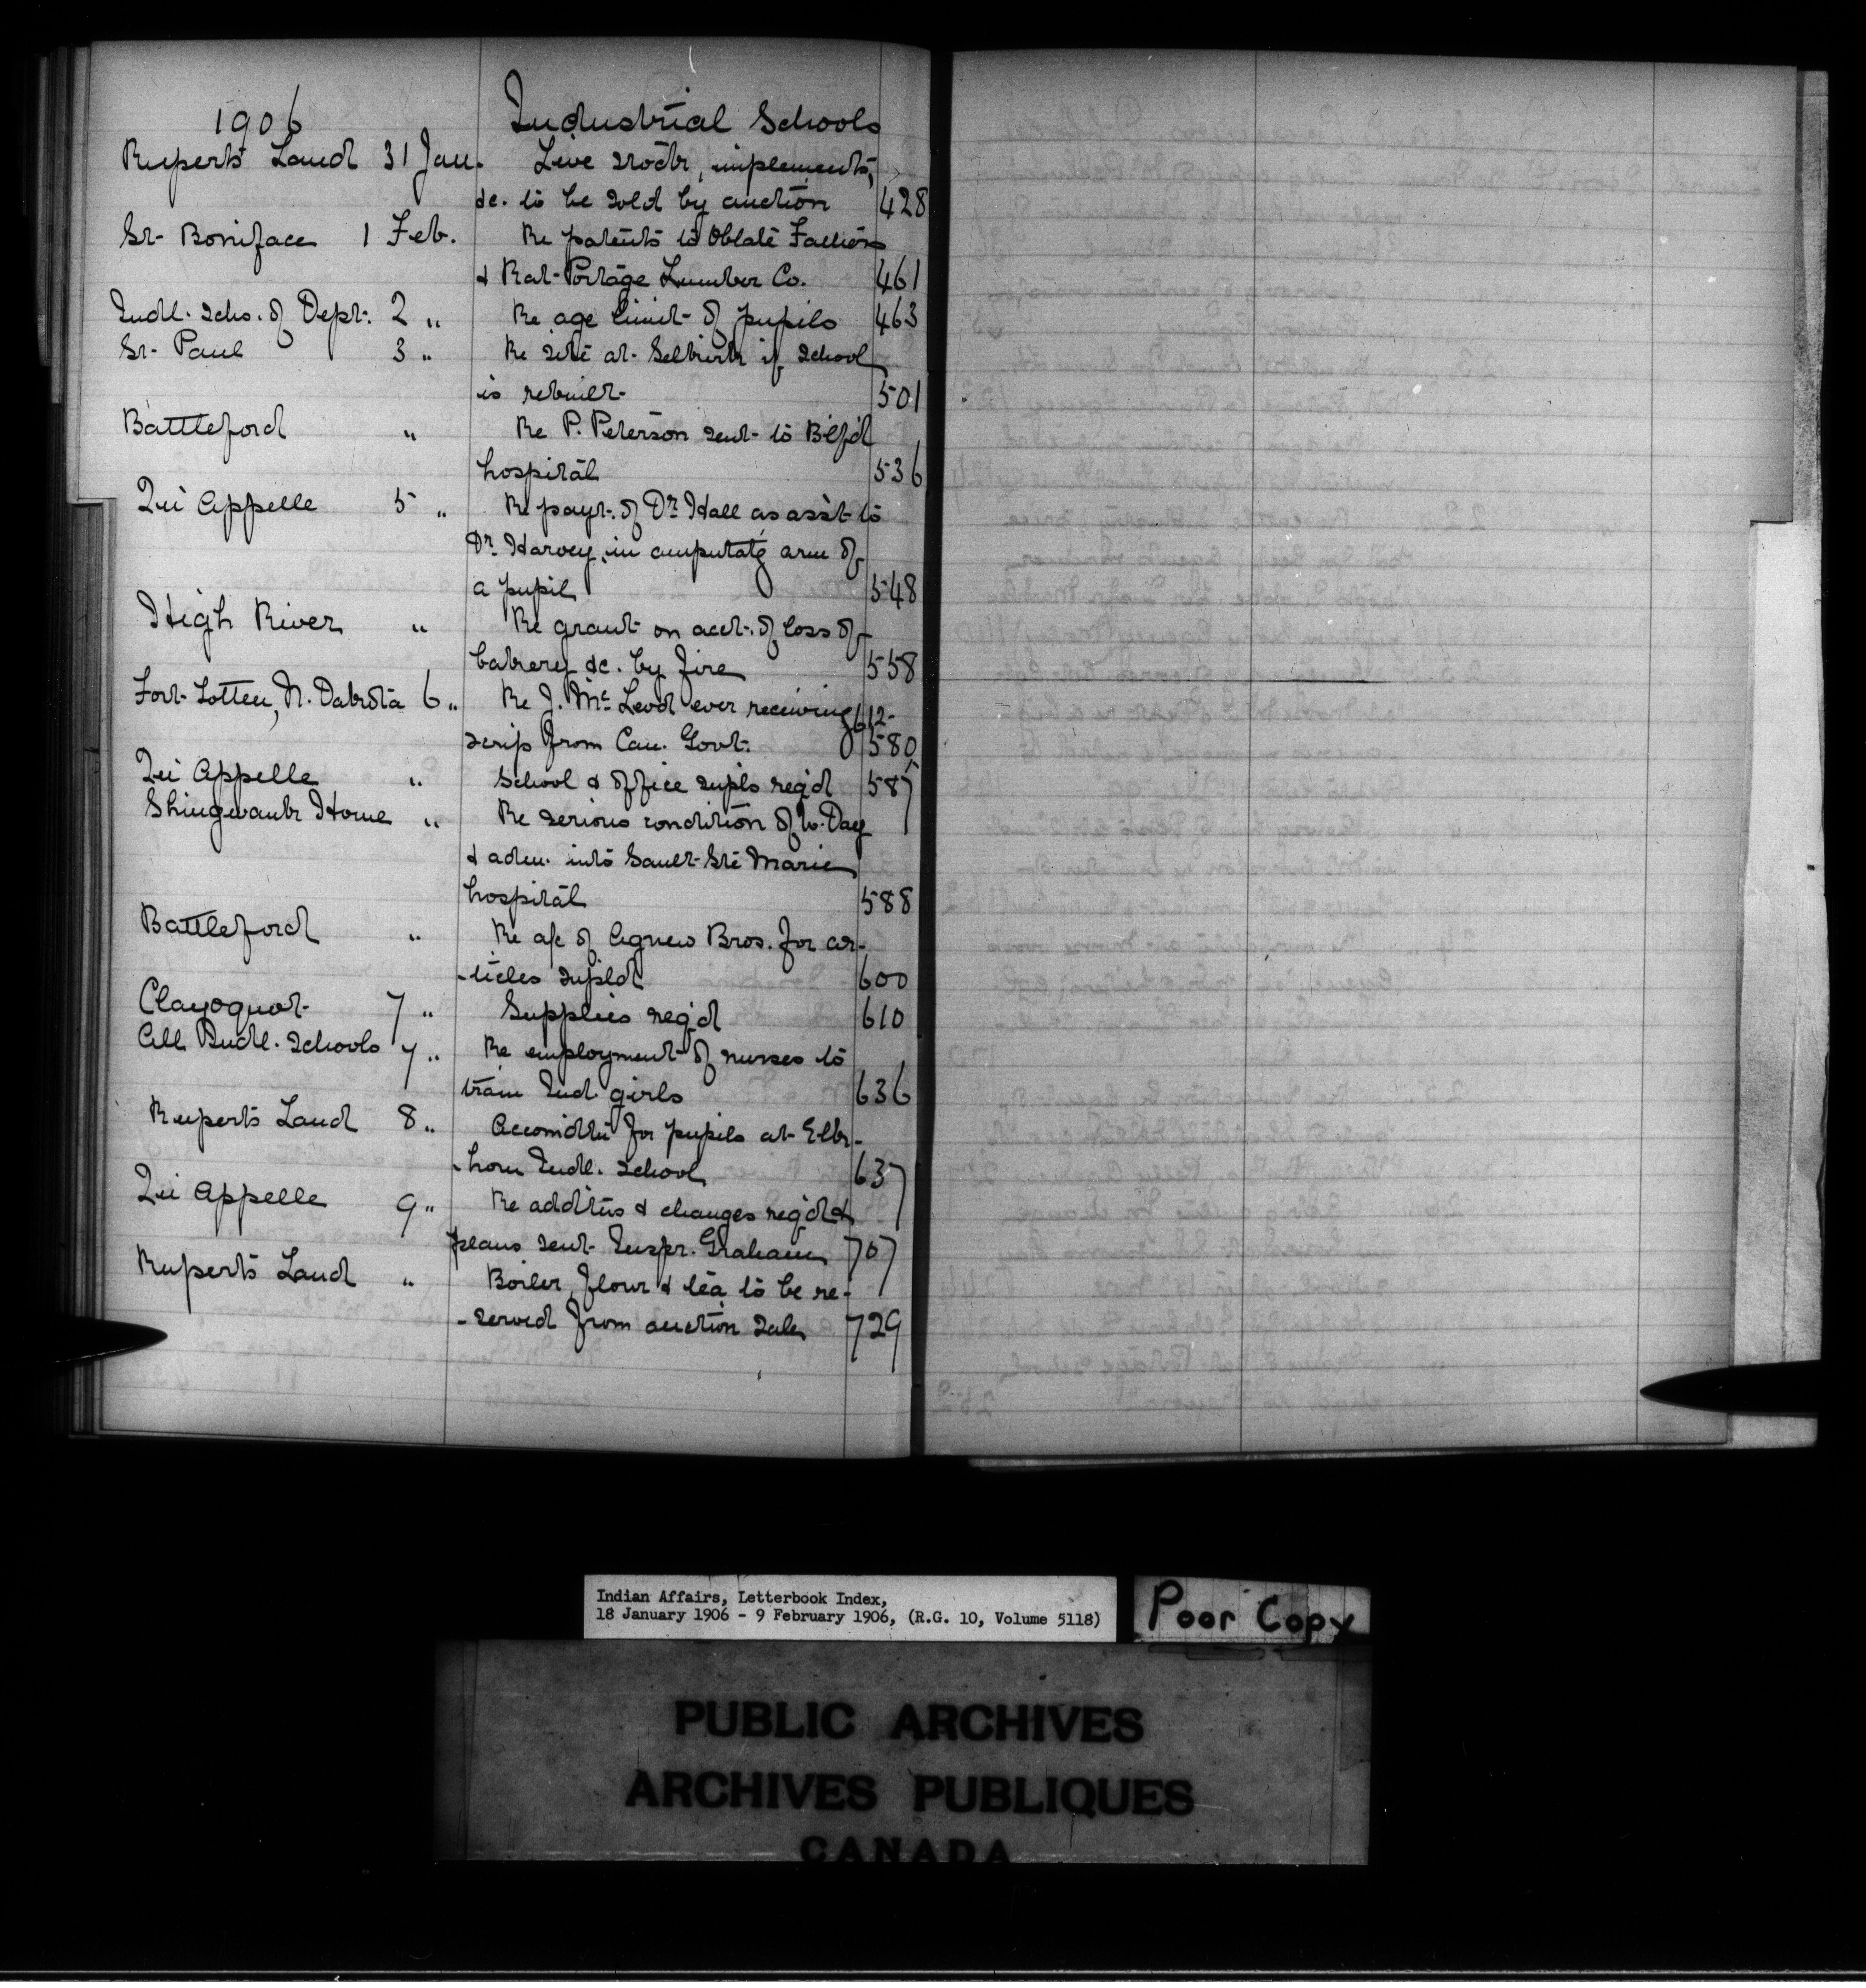 1906 Industrial Schools
Ruperts Land 31 Jan. Live stock, implements,
&c. to be sold by auction 428
St. Boniface 1 Feb. Re patents to Oblate Fathers
& Rat Portage Lumber Co. 461
Indl. Schs. of Dept. 2 " Re age limit of pupils 463
St. Paul 3 " Re site at Selkirk if school
is rebuilt 501
Battleford " Re P. Peterson sent to B'lf'd
hospital 536
Qu'Appelle 5 " Re payt. of Dr. Hall as ass't to
Dr. Harvey, in amputat'g arm of
a pupil 548
High River " Re grant on acct. of loss of
bakery &c. by fire 558
Fort Totten, N. Dakota 6 " Re J. McLeod ever receiving 612-
scrip from Can. Govt. 580
Qu'Appelle " School & office supls req'd 587
Shingwauk Home " Re serious condition of W. Day
& adm. into Sault Ste Marie
hospital 588
Battleford " Re a/c of Agnew Bros. for ar-
-ticles supld 600
Clayoquot 7 " Supplies req'd 610
All Indl. Schools 7 " Re employment of nurses to
train Ind. girls 636
Ruperts Land 8 " Accomdtn for pupils at Elk-
-horn Indl. School 637
Qu'Appelle 9 " Re additns & changes req'd &
plans sent Inspr. Graham 707
Ruperts Land " Boiler, flour & tea to be re-
-served from auction sale 729
Indian Affairs, Letterbook Index,
18 January 1906 - 9 February 1906, (R.G. 10, Volume 5118)
Poor Copy
PUBLIC ARCHIVES
ARCHIVES PUBLIQUES
CANADA